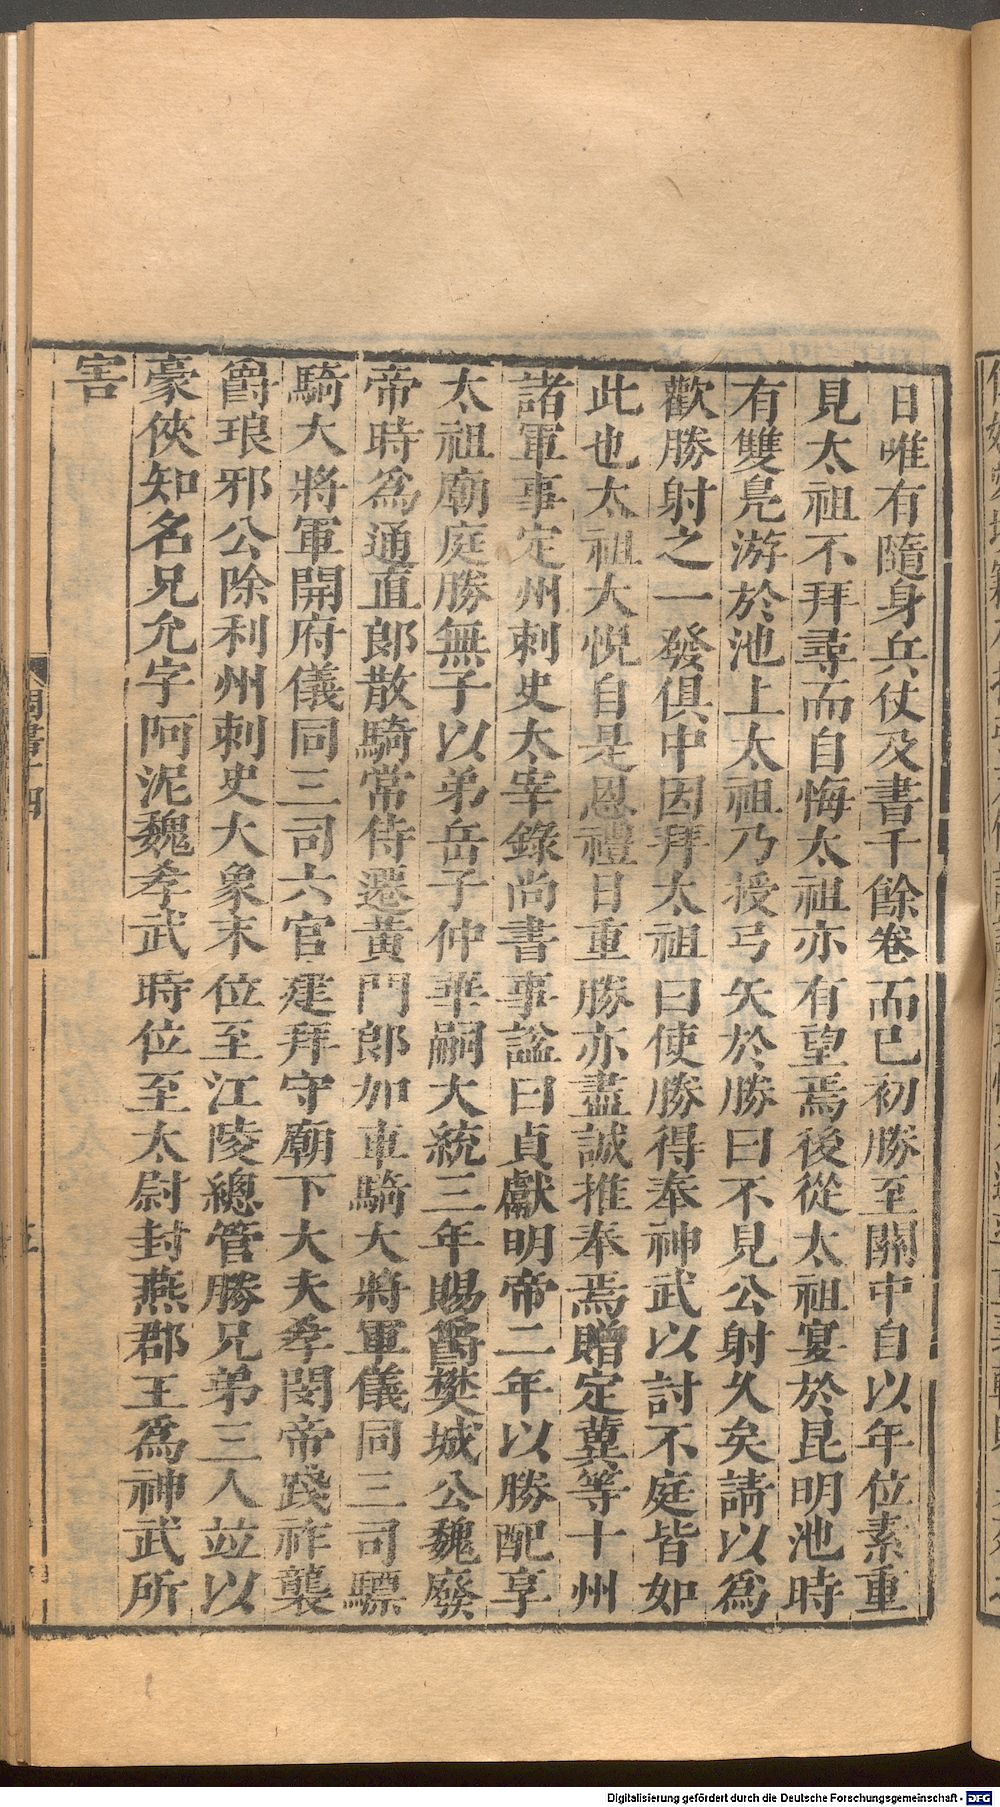 日唯有隨身兵仗及書千餘卷而已初勝至關中自以年位素重
見太祖不拜尋而自悔太祖亦有望焉後從太祖宴於昆明池時
有雙鳧游於池上太祖乃授弓矢於勝曰不見公射久矣請以爲
歡勝射之一發俱中因拜太祖曰使勝得奉神武以討不庭皆如
此也太祖大悅自是恩禮日重勝亦盡誠推奉焉贈定冀等十州
諸軍事定州刺史太宰錄尚書事諡曰貞獻明帝二年以勝配享
太祖廟庭勝無子以弟岳子仲華嗣大統三年賜爵樊城公魏廢
帝時爲通直郎散騎常侍遷黃門郎加車騎大將軍儀同三司驃
騎大將軍開府儀同三司六官建拜守廟下大夫孝閔帝踐祚襲
爵琅邪公除利州刺史大象末位至江陵總管勝兄弟三人竝以
豪俠知名兄允字阿泥魏孝武時位至太尉封燕郡王爲神武所
害
周書十四
Digitalisierung gefördert durch die Deutsche Forschungsgemeinschaft - DFG